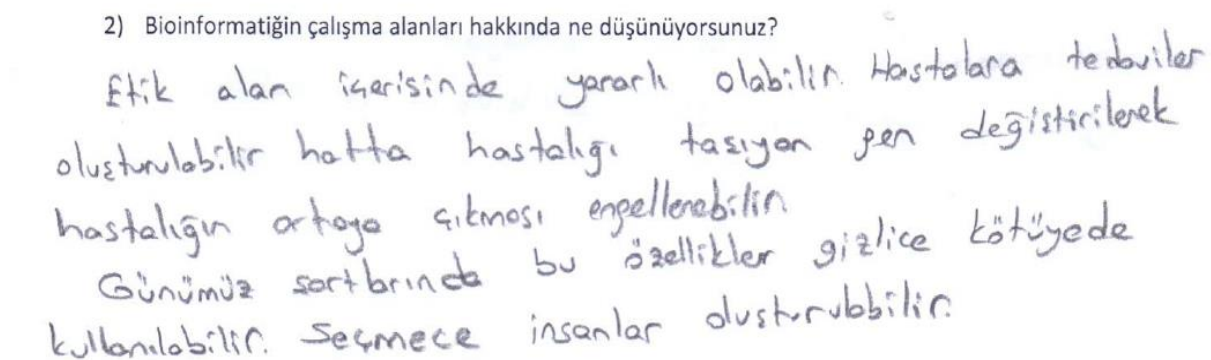 2) Bioinformatiğin çalışma alanları hakkında ne düşünüyorsunuz?
Etik alan içerisinde yararlı olabilir. Hastalara tedaviler
oluşturulabilir hatta hastalığı taşıyan gen değiştirilerek
hastalığın ortaya çıkması engellenebilir.
Günümüz şartlarında bu özellikler gizlice kötüyede
kullanılabilir. Seçmece insanlar oluşturulabilir.